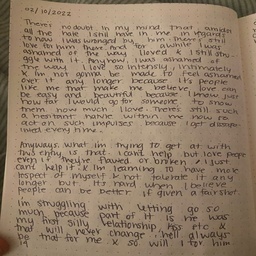 02/10/2022
There's no doubt in my mind that amidst
all the hate I still have in me in regards
to how I was wronged by him, there's still
love for him there. And for awhile I was
ashamed of the way I loved & I still stru-
ggle with it. Anyhow, I was ashamed of
the way I love so intensely, intimately
& I'm not gonna be made to feel ashamed
over it any longer because it's people
like me that make me believe love can
be easy and beautiful because I know just
how far I would go for someone to show
them how much I love. There's still such
a hesitant habit within me now to
act on such impulses because I get disapp-
inted every time.
Anyways what im trying to get at with
this entry is that I can't help but love people
even if they're flawed or broken & I just
can't help it & I'm learning to have more
respect of myself & not tolerate it any
longer but it's hard when I believe
people can be better if given a fair shot.
Im struggling with letting go so
much because part of it is he was
my first silly relationship kiss etc &
that will never change. he'll always
be that for me & so will I for him